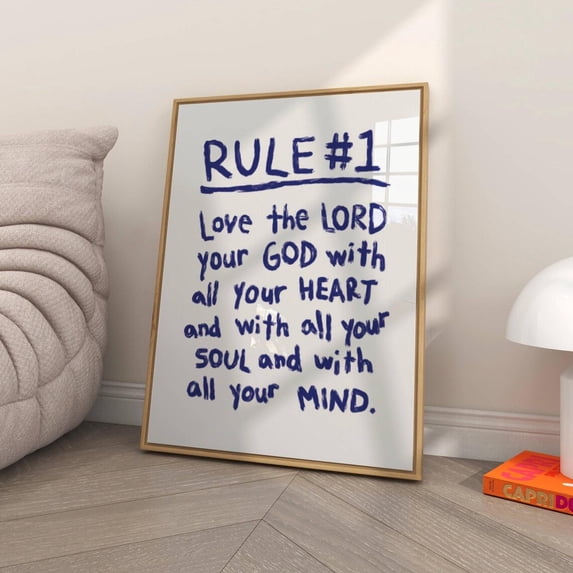 RULE #1
Love the LORD
your GOD with
all your HEART
and with all your
SOUL and with
all your MIND.